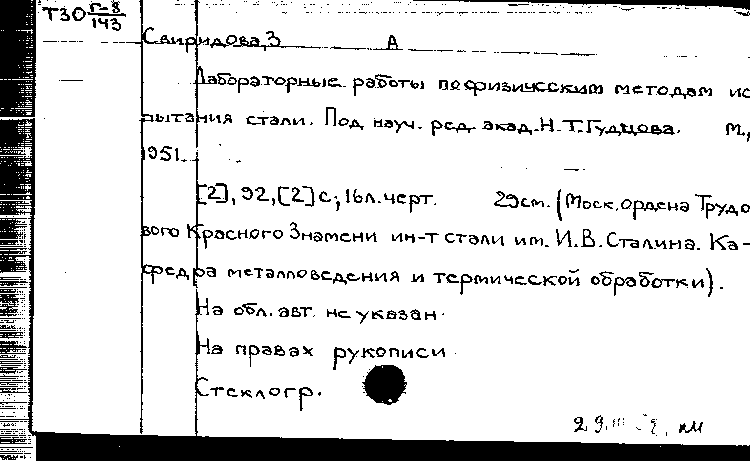 ТЗО Г-8/143
Свиридова, З А
Лабораторные работы по физическим методам ис
пытания стали. Под науч. ред. акад. Н.Т. Гудцова. М.,
1951.
[2], 92, [2] с; 16л. черт. 29см. (Моск. ордена Трудо
вого Красного Знамени ин-т стали им. И.В. Сталина. Ка-
федра металловедения и термической обработки).
На обл. авт. не указан.
На правах рукописи
Стеклогр.
29.III